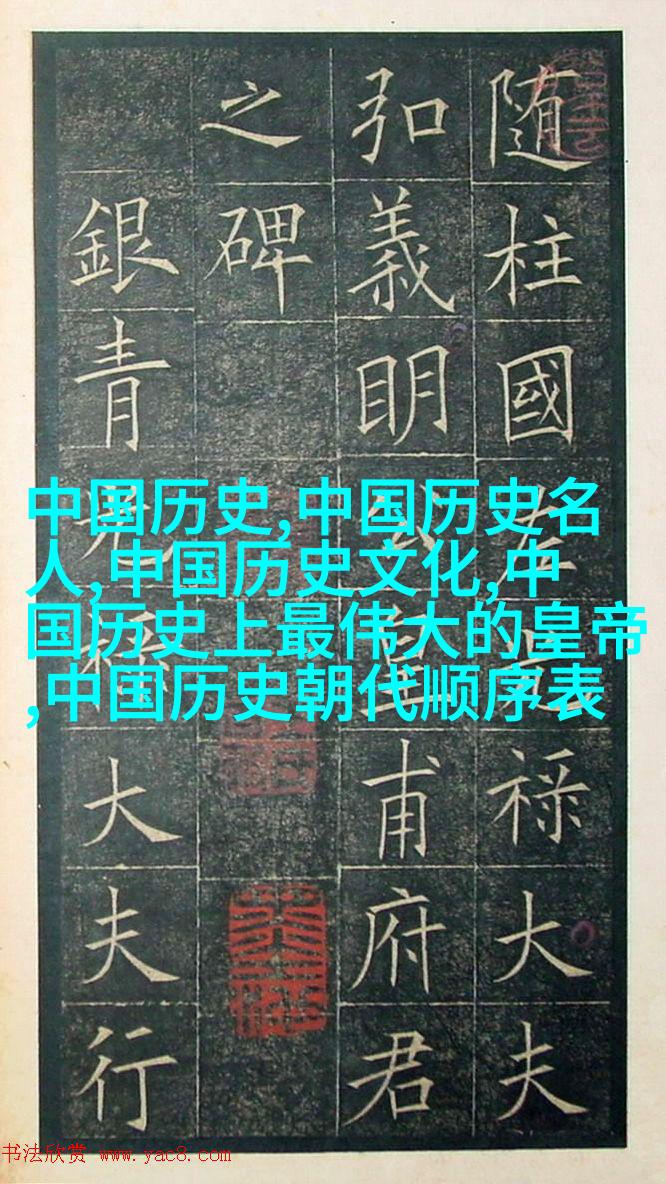 随柱國左光禄大夫
弘義明公皇甫府君
之碑
銀青光禄大夫行
中国历史,中国历史名
人,中国历史文化,中
国历史上最伟大的皇帝
,中国历史朝代顺序表
书法欣赏 www.yac8.com